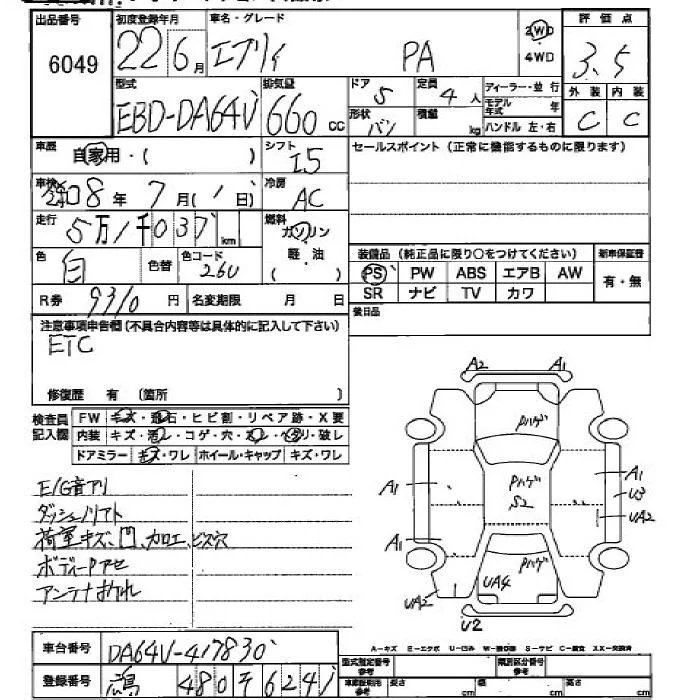 出品番号 初度登録年月 車名・グレード 2WD 評価点
6049 22 6月 エブリィ PA 4WD 3.5
型式 排気量 ドア 定員 ディーラー・並行 外装 内装
EBD-DA64V 660 cc 5 4人 モデル年式 年 C C
形状 バン 積載 kg ハンドル 左・右
車歴 自家用・( ) シフト I5 セールスポイント(正常に機能するものに限ります)
車検 8年 7月( 1日) 冷房 AC
走行 5万1千037 km 燃料 ガソリン
軽・油
色 白 色替 色コード 26U 装備品(純正品に限り○をつけてください) 新車保証書
PS PW ABS エアB AW 有・無
R券 9310円 名変期限 月 日 SR ナビ TV カワ
後日品
注意事項申告欄(不具合内容等は具体的に記入して下さい)
ETC
修復歴 有 (箇所 )
検査員 FW キズ・飛石・ヒビ割・リペア跡・X要
記入欄 内装 キズ・汚レ・コゲ・穴・ ・ ・破レ
ドアミラー キズ・ワレ ホイール・キャップ キズ・ワレ
E/G音アリ
ダッシュノリアト
荷室キズ、凹、カロエ、ビス穴
ボディーPアセ
アンテナおれ
A2 A1
Pハゲ
A1 PハゲS2 A1
U3
UA2
A1
Pハゲ
UA4
UA2
U2
A-キズ E-エクボ U-凹み S-サビ C-腐食 XX-交換済
車台番号 DA64V-417830 型式指定番号 参考 類別区分番号 参考
登録番号 480 6241 車庫証明用 参考 長さ cm 幅 cm 高さ cm